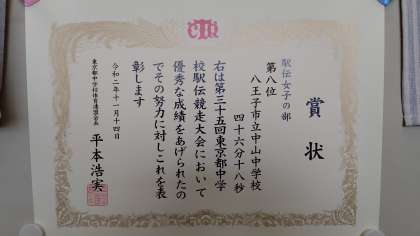 賞状
駅伝女子の部
第八位
八王子市立中山中学校
四十六分十八秒
右は第三十五回東京都中学
校駅伝競走大会において
優秀な成績をあげられたの
でその努力に対しこれを表
彰します
令和二年十一月十四日
東京都中学校体育連盟会長
平本浩実